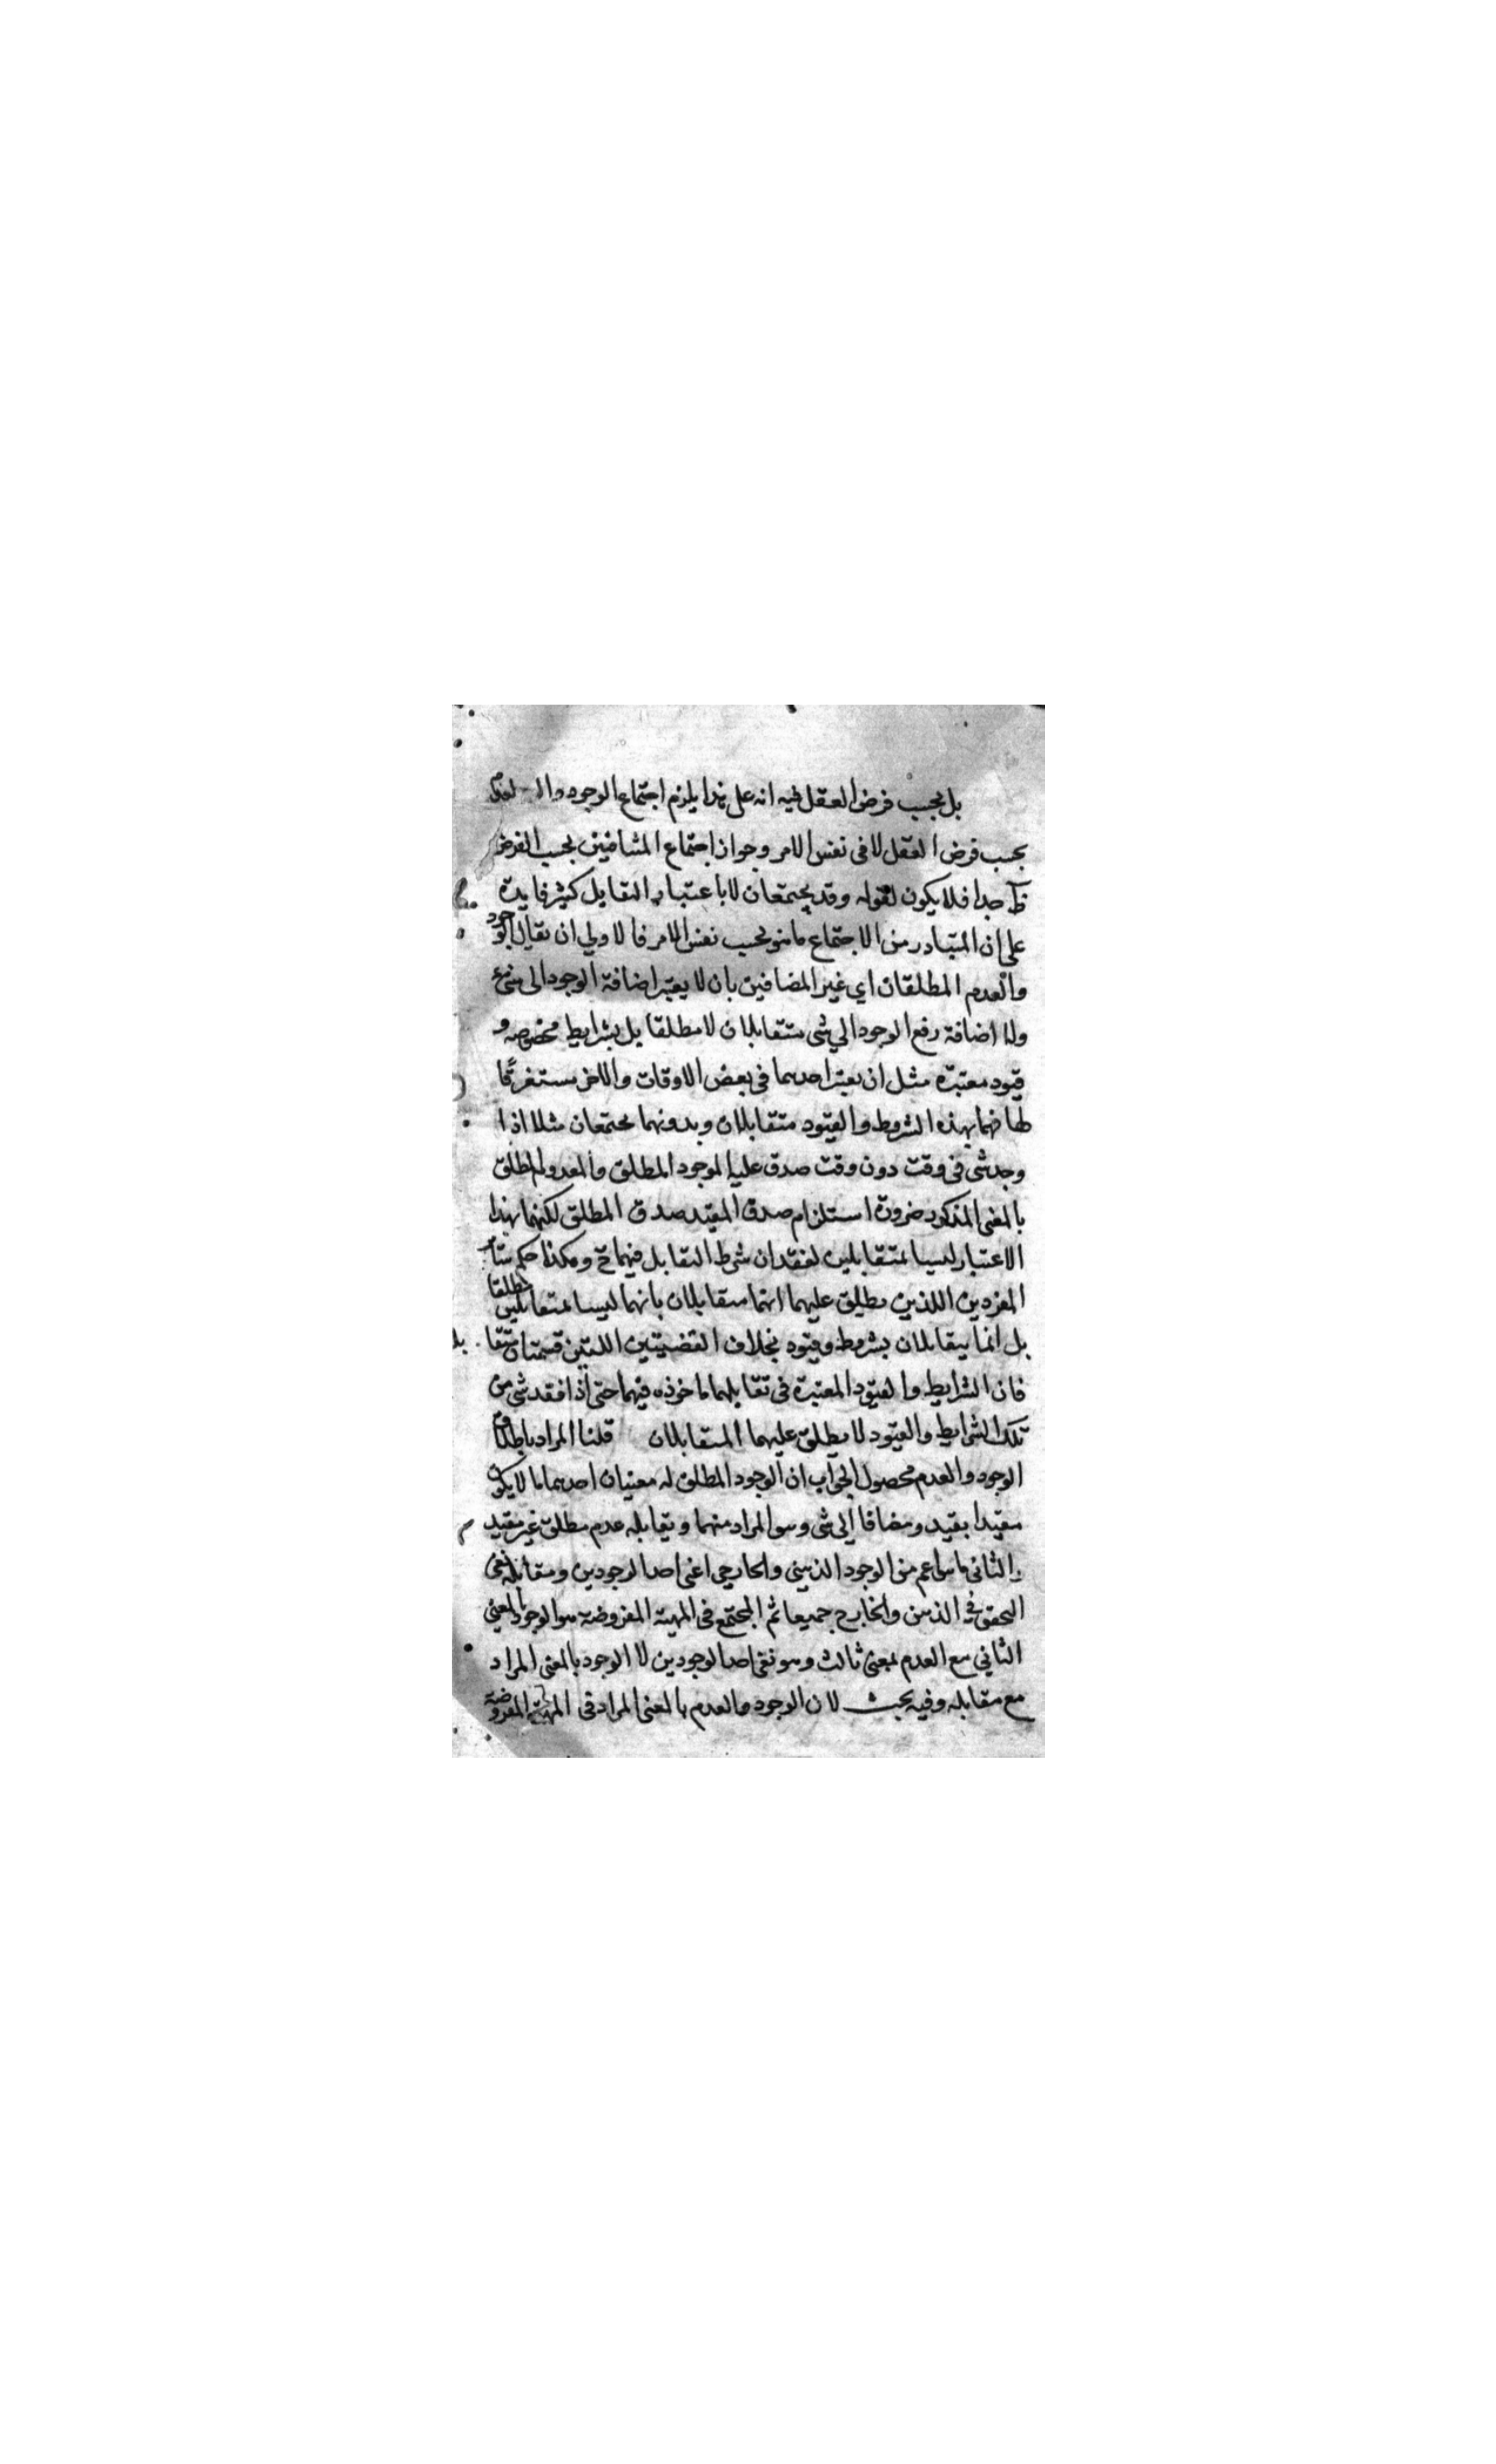 بل بحسب فرض العقل فيه انه على هذا يلزم اجتماع الوجود والـ لعدم
بحسب فرض العقل لا فى نفس الامر وجواز اجتماع المتنافيين بحسب الفرض
ظ جدا فلا يكون لقوله وقد يجتمعان لا باعتبار التقابل كثير فايدة
على ان المتبادر من الاجتماع ما هو بحسب نفس الامر فالاولي ان يقال الوجود
والعدم المطلقان اي غير المضافين بان لا يعتبر اضافة الوجود الى شئ
ولا اضافة رفع الوجود الي شى متقابلان لا مطلقا بل بشرايط مخصوصه و
قيود معتبرة مثل ان يعتبر احدهما فى بعض الاوقات والاخر مستغرقا
لها فهما بهذه الشروط والقيود متقابلان وبدونهما يجتمعان مثلا اذا
وجد شى فى وقت دون وقت صدق عليه الموجود المطلق والمعدوم المطلق
بالمعنى المذكور ضرورة استلزام صدق المقيد صدق المطلق لكنهما بهذا
الاعتبار ليسا بمتقابلين لفقدان شرط التقابل فيهما ح وهكذا حكم سائر
المفردين اللذين يطلق عليهما انهما متقابلان بانهما ليسا متقابلين مطلقا
بل انما يتقابلان بشروط وقيود بخلاف القضيتين اللتين
فان الشرايط والقيود المعتبرة فى تقابلهما ماخوذه فيهما حتى اذا فقد شى من
تلك الشرايط والقيود لا يطلق عليهما المتقابلان قلنا المراد باطلاق
الوجود والعدم محصول الجواب ان الوجود المطلق له معنيان احدهما ما لا يكون
مقيدا بقيد ومضافا الى شى وهو المراد منهما ويقابله عدم مطلق غير مقيد
والثانى ما هو اعم من الوجود الذهنى والخارجى اعنى احد الوجودين ومقابله نفى
التحقق فى الذهن والخارج جميعا ثم المجتمع فى المهية المفروضة هو الوجود بالمعنى
الثانى مع العدم بمعنى ثالث وهو نفى احد الوجودين لا الوجود بالمعنى المراد
مع مقابله وفيه بحث لان الوجود والعدم بالمعنى المراد فى المهية المفروضة